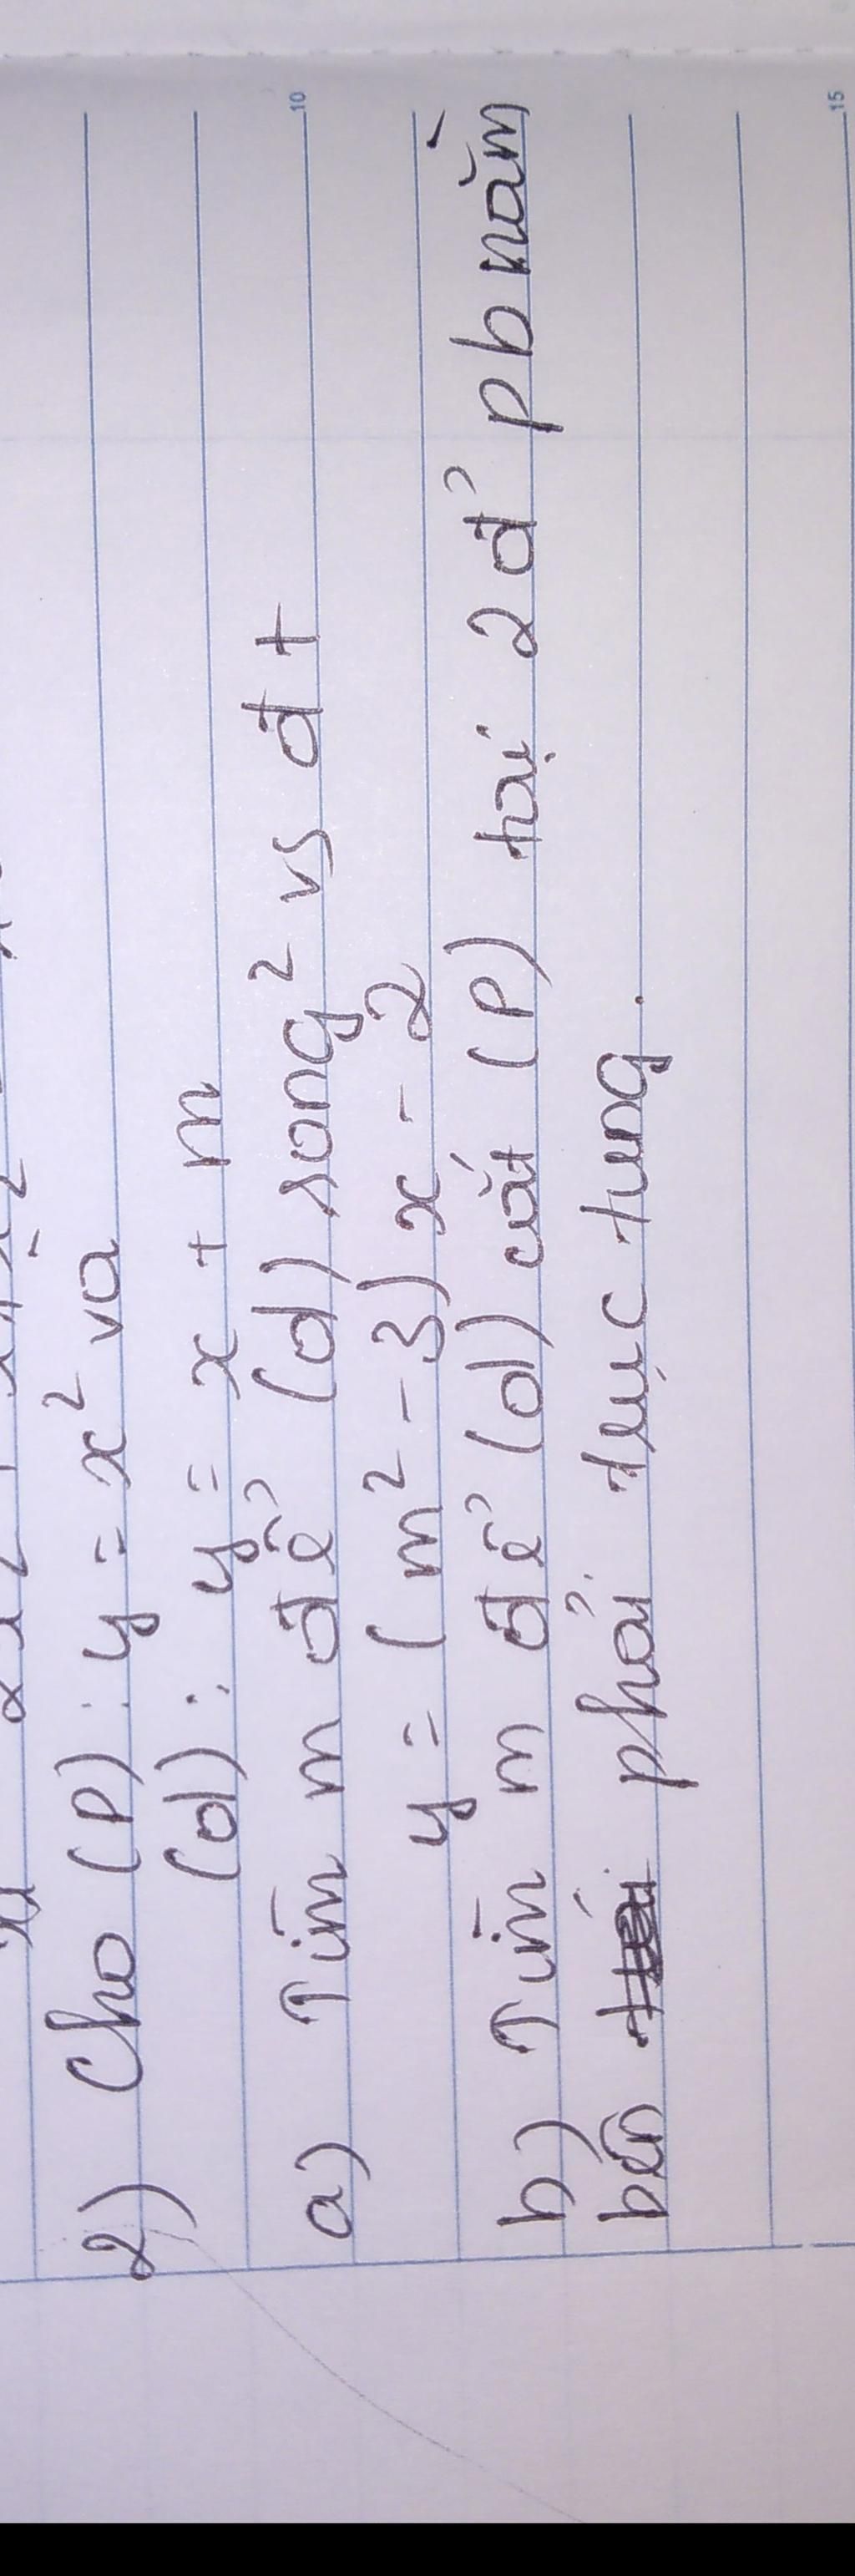 2) Cho (P) : y = x² và
(d) : y = x + m
a) Tìm m để (d) song² vs đt
y = (m² - 3)x - 2
b) Tìm m để (d) cắt (P) tại 2 đ' pb nằm
bên phải trục tung.
10
15